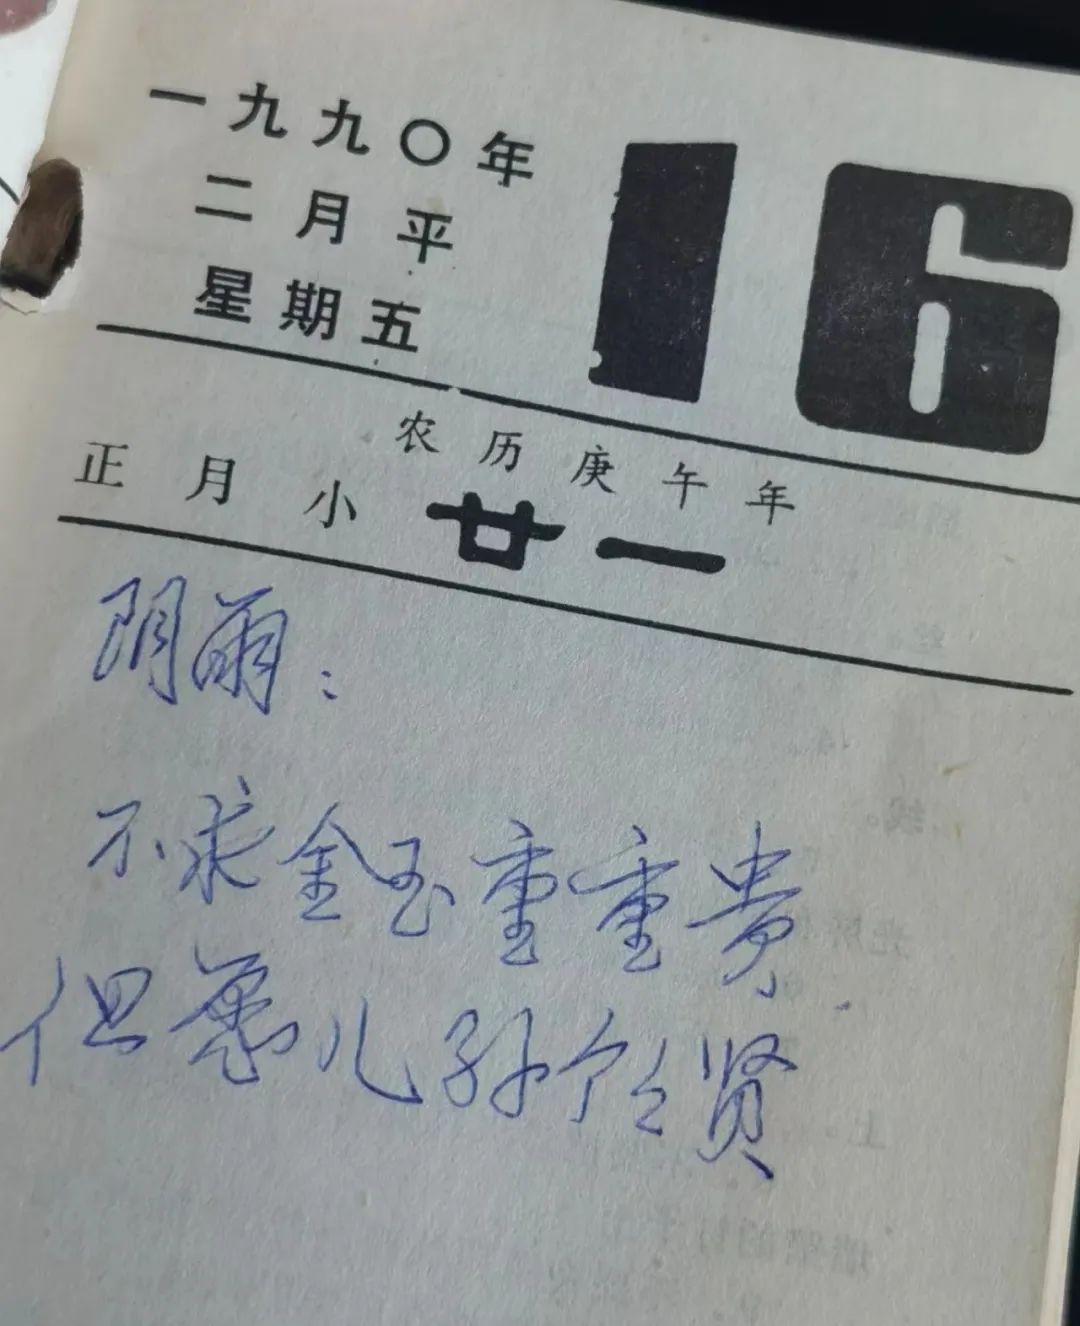 一九九〇年
二月平
星期五
16
农历庚午年
正月小 廿一
阴雨：
不求金玉重重贵
但愿儿孙个个贤